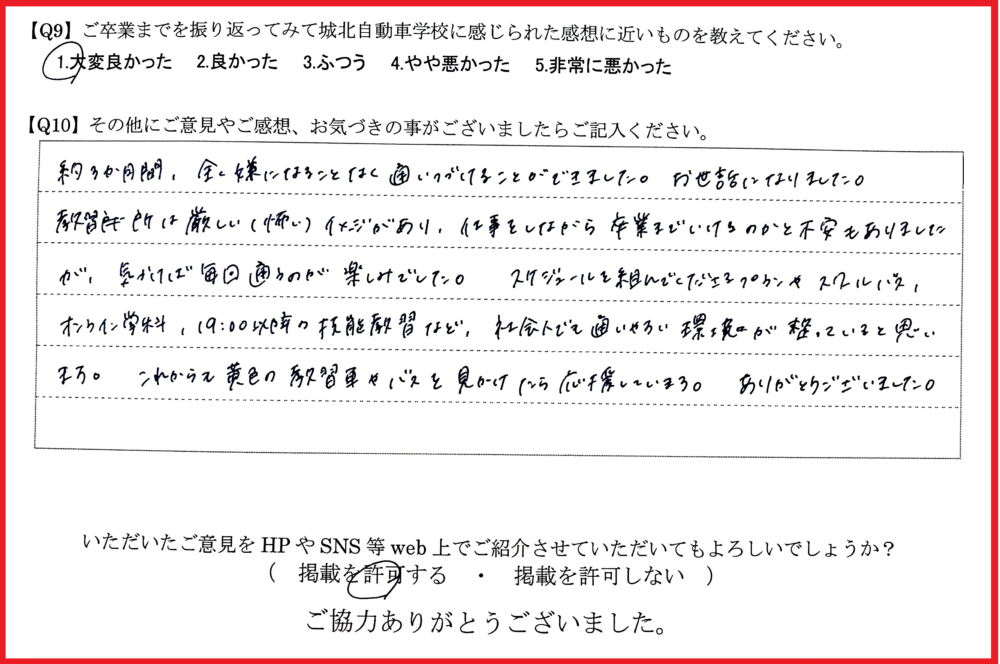 【Q9】ご卒業までを振り返ってみて城北自動車学校に感じられた感想に近いものを教えてください。
1.大変良かった 2.良かった 3.ふつう 4.やや悪かった 5.非常に悪かった
【Q10】その他にご意見やご感想、お気づきの事がございましたらご記入ください。
約3か月間、全く嫌になることなく通いつづけることができました。 お世話になりました。
教習所は厳しい(怖い)イメージがあり、仕事をしながら卒業までいけるのかと不安もありました
が、気づけば毎回通うのが楽しみでした。 スケジュールを組んでくださるプランやスクールバス、
オンライン学科、19:00以降の技能教習など、社会人でも通いやすい環境が整っていると思い
ます。 これからも黄色の教習車やバスを見かけたら応援しています。 ありがとうございました。
いただいたご意見をHPやSNS等web上でご紹介させていただいてもよろしいでしょうか?
( 掲載を許可する ・ 掲載を許可しない )
ご協力ありがとうございました。